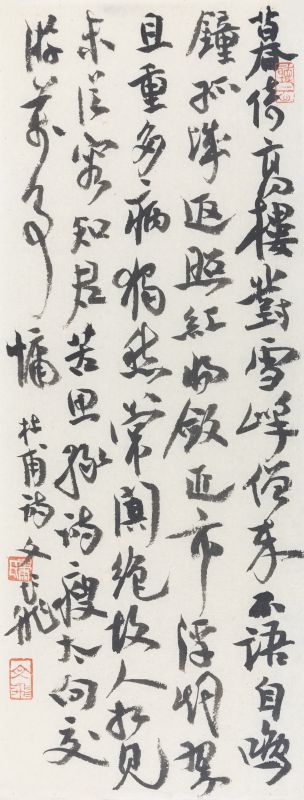 暮倚高樓對雪峰僧來不語自鳴
鐘孤城返照紅將斂近市浮烟翠
且重多病獨愁常闃絕故人相見
未從容知君苦思緣詩瘦太向交
游萬事慵 杜甫詩文飛